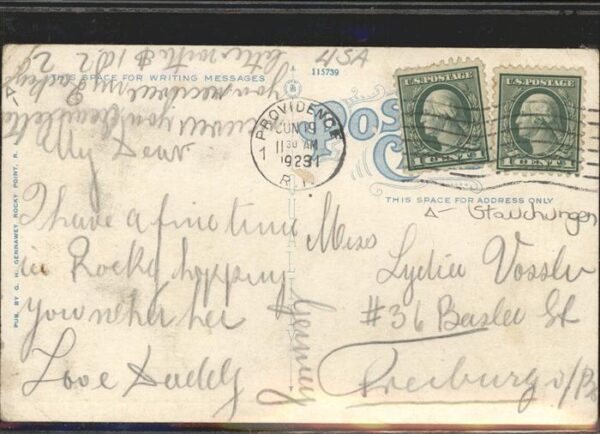 USA
115739
THIS SPACE FOR WRITING MESSAGES
you received my
letter with $
PROVIDENCE
JUN 19
11 30 AM
1923
R. I.
U.S. POSTAGE
1 CENT 1
U.S. POSTAGE
1 CENT 1
THIS SPACE FOR ADDRESS ONLY
Δ- Stauchungen
PUB. BY G. H. GENNAWEY ROCKY POINT, R. I.
My Dear
I have a fine time
in Rocky
you
her
Love Daddy
Miss
Lydia Vossler
#36 Basler St
Freiburg
Germany